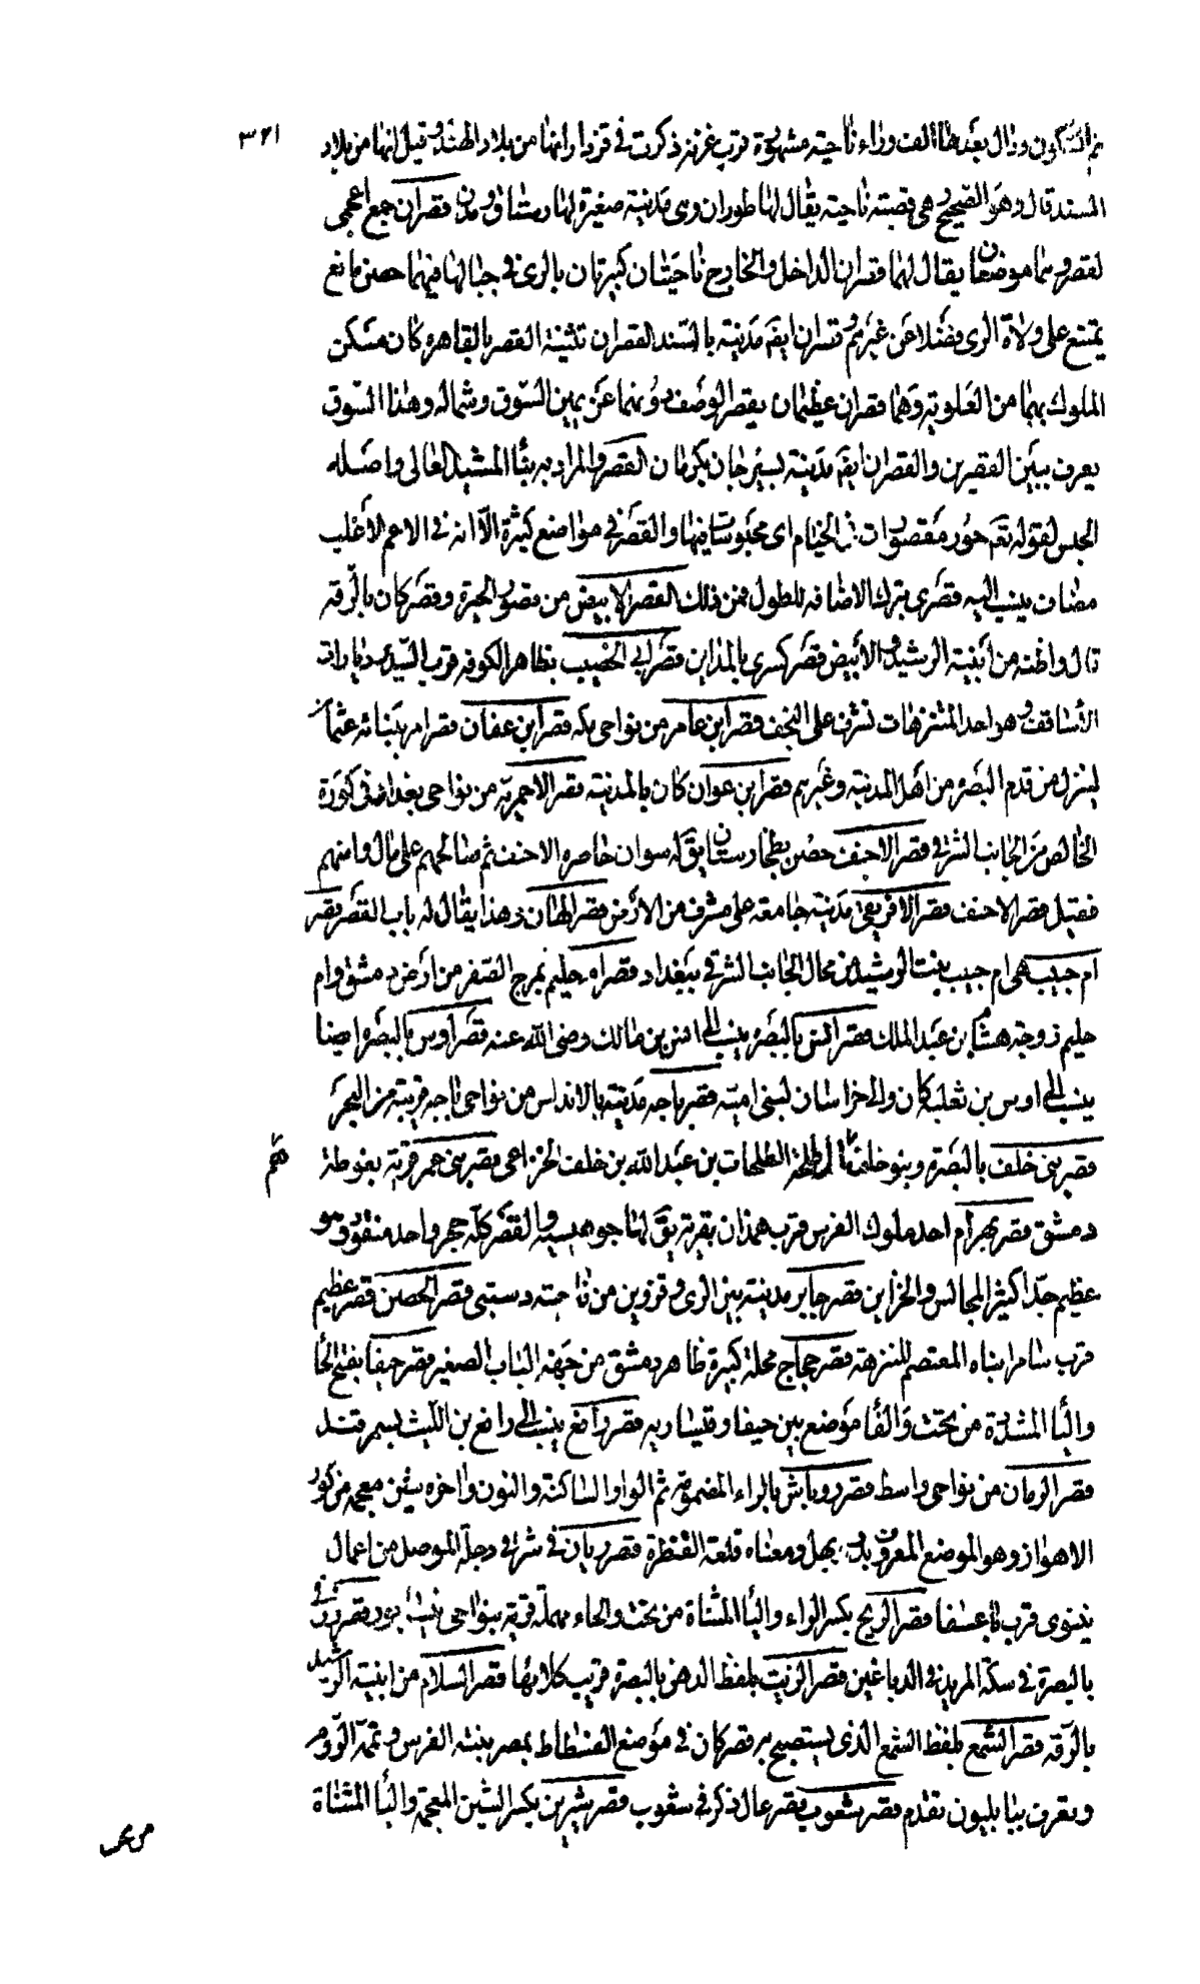 ٣٦١
ثم السكون ودال بعدها الف وراء ناحيته مشهورة قرب غزنه ذكرت في قزدار وانها من بلاد الهند وقيل انها من بلاد
السند قال وهو الصحيح وهي قصبته ناحيته يقال لها طوران وهى مدنيته صغيرة لها رستاق ومدن قصران جمع اعجمى
لقصر وهما موضعان يقال لهما قصران الداخل والخارج ناحيتان كبيرتان بالرى في جبالها فيهما حصن مانع
يمتنع على ولاة الرى فضلا عن غيرهم وقصران ايضه مدنيته بالسند القصران تثنية القصر بالقاهره كان مسكن
الملوك بهما من العلويه وهما قصران عظيمان يقصر الوصف دونهما عن يمين السوق وشماله وهذا السوق
يعرف ببين القصرين والقصران ايضه مدنيته بسيرجان بكرمان القصر والمراد به بنا المشيد العالى واصله
الحبس لقوله تعه حور مقصورات في الخيام اى محبوسات فيها والقصر في مواضع كثيرة الا انه في الاعم الاغلب
مضاف ينسب اليه قصرى بترك الاضافه للطول فمن ذلك القصر الابيض من قصور الحيرة وقصر كان بالرقه
قال واظنه من ابنية الرشيد والابيض قصر كسرى بالمداين قصر ابي الخصيب بظاهر الكوفه قرب السدير ديارات
الاساقف وهو احد المتنزهات تشرف على النجف قصر ابن عامر من نواحى مكه قصر ابن عفان قصر امر ببنائه عثمان
لينزل من قدم البصره من اهل المدنيته وغيرهم قصر ابن عوان كان بالمدنيته قصر الاحمريه من نواحى بغداد في كورة
الخالص من الجانب الشرقى قصر الاحنف حصن بطخارستان يقه له سوان حاصره الاحنف ثم صالحهم على مال وامنهم
فقيل قصر الاحنف قصر الافريقى مدنيته جامعه على مشرف من الارض قصر الطان بغداد يقال له باب القصر قصر
ام حبيب هى ام حبيب بنت الرشيد من محال الجانب الشرقى ببغداد قصر ام حليم بمرج الصفر من ارض دمشق وام
حليم زوجة هشام بن عبد الملك قصر انس بالبصره ينسب الى انس بن مالك رضى الله عنه قصر اوس بالبصره ايضا
ينسب الى اوس بن ثعلبه كان والى خراسان لبنى اميته قصر باجه مدنيته بالاندلس من نواحى باجه قريبة من البحر
قصر بنى خلف بالبصرة وبنو خلف آل طلحة الطلحات بن عبد الله بن خلف الخزاعى قصر بنى عمر قرية بغوطة
دمشق قصر بهرام احد ملوك الفرس قرب همذان بقرية يقه لها جوهسته والقصر كله حجر واحد منقور وهو
عظيم جدا كثير المجالس والخزاين قصر جابر مدنيته بين الرى وقزوين من ناحيته دستبى قصر الحصن قصر عظيم
قرب سامرا بناه المعتصم للنزهة قصر حجاج محلة كبيرة ظاهر دمشق من جهة الباب الصغير قصر حيفا بفتح الحا
واليا المثناة من تحت والفا موضع بين حيفا وقيساريه قصر رافع ينسب الى رافع بن الليث بسمرقند
قصر الرمان من نواحى واسط قصر روناش بالراء المضمومة ثم الواو الساكنة والنون واخره شين معجمه من كور
الاهواز وهو الموضع المعروف بدزبهل ومعناه قلعة القنطرة قصر ريان في شرقى دجلة الموصل من اعمال
نينوى قرب باعشقا قصر الريح بكسر الراء واليا المثناة من تحت والحاء مهملة قرية بنواحى نيسابور قصر زربى
بالبصرة في سكة المربد في الدباغين قصر الزيت بلفظ الدهن بالبصرة قريب كلائها قصر السلام من ابنيته الرشيد
بالرقه قصر الشمع بلفظ الشمع الذى يستصبح به قصر كان في موضع الفسطاط بمصر بنته الفرس وتممه الروم
ويعرف ببابليون تقدم قصر شعوب قصر عال ذكر في شعوب قصر شيرين بكسر الشين المعجمة واليا المثناة
من تحت